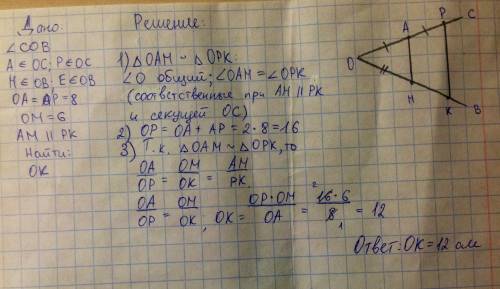 Дано:
∠COB
A ∈ OC; P ∈ OC
M ∈ OB; E ∈ OB
OA = AP = 8
OM = 6
AM ∥ PK
Найти:
OK
Решение:
1) △OAM ~ △OPK:
∠O общий; ∠OAM = ∠OPK
(соответственные при AM ∥ PK
и секущей OC)
2) OP = OA + AP = 2·8 = 16
3) Т.к. △OAM ~ △OPK, то
OA/OP = OM/OK = AM/PK
OA/OP = OM/OK, OK = OP·OM/OA = 16·6/8 = 12
2
1
Ответ: OK = 12 см
O
A
P
C
M
K
B